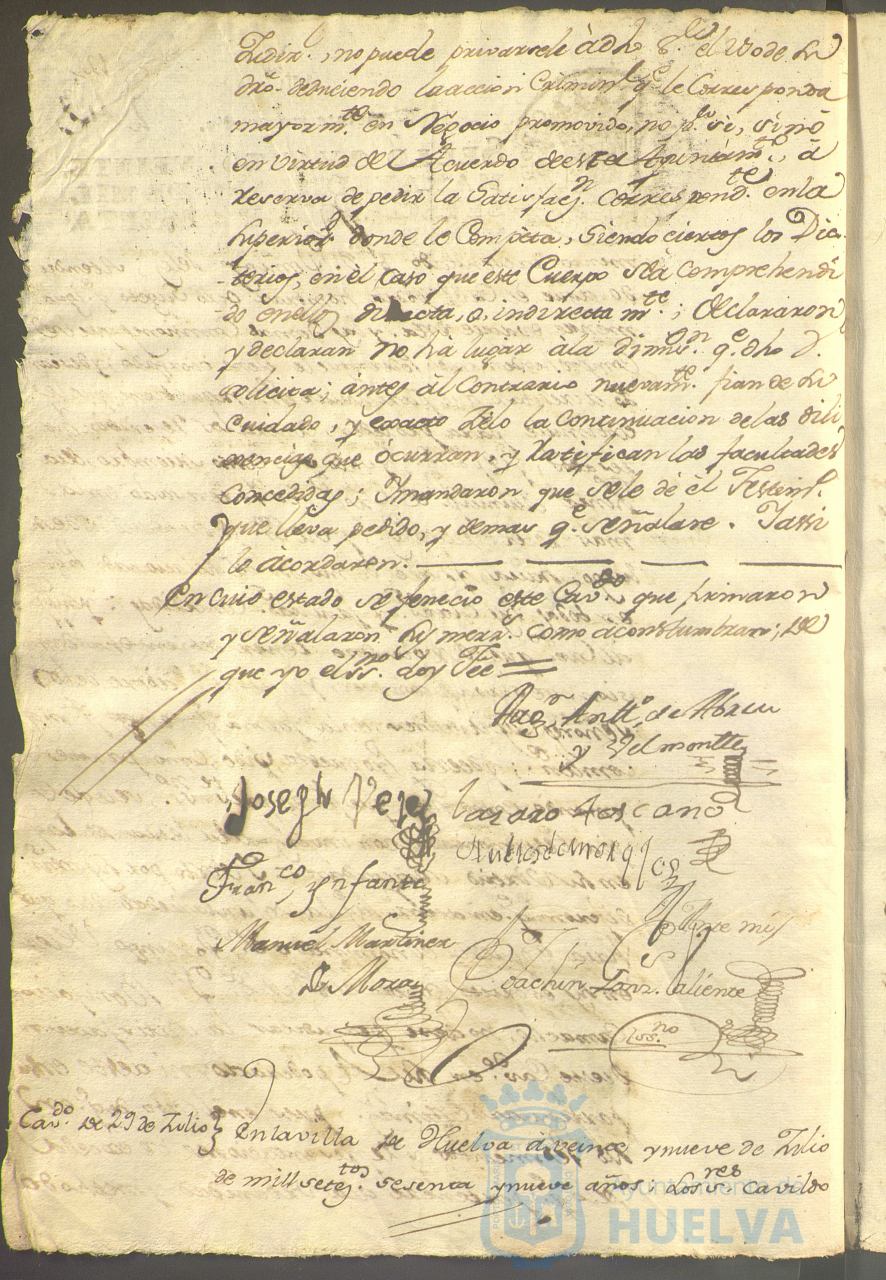 Zedir., no puede privarsele â dho S.r el Uso de su
dro. deduciendo la accion Crimin.l q.e le Corresponda
mayorm.te en Negocio promovido, no p.r si, sinó
en virtud del Acuerdo de este Ayuntam.to, á
reserva de pedir la Satisfacj.n Correspond.te en la
Superiorid.d donde le Competa, Siendo ciertos los Dic-
-terios, en el Caso que este Cuerpo sea Comprehendi
-do en ellos directa, o, indirectam.te; Declararon
y declaran no há lugar âla Dimis.on q.e dho D.
solicita; ántes âl Contrario nuevam.te fian de su
Cuidado, y exacto Zelo la Continuacion de las dili
gencias que ôcurran, y Ratifican las facultades
Concedidas; Ymandaron que sele dé el Testim.o
que lleva pedido, y demas q.e señalare. Yassi
lo ácordaron.
En cuio estado se feneció este Cav.do que firmaron
y señalaron sus merz.s como acostumbran; de
que yo el ss.no doy Fee
Ag.n Antt.o de Abreu
y Velmontte
Joseph Veje
Lazaro Toscano
Fran.co Ynfante
Manuel Martinez
de Mora
Ante mi
Joachin Sanz. Caliente
ss.no
Cav.do de 29 de Julio
En la villa de Huelva á veinte y nueve de Julio
de mill setez.tos sesenta y nueve años: Los S.res Cavildo
Ayuntamiento de
HUELVA